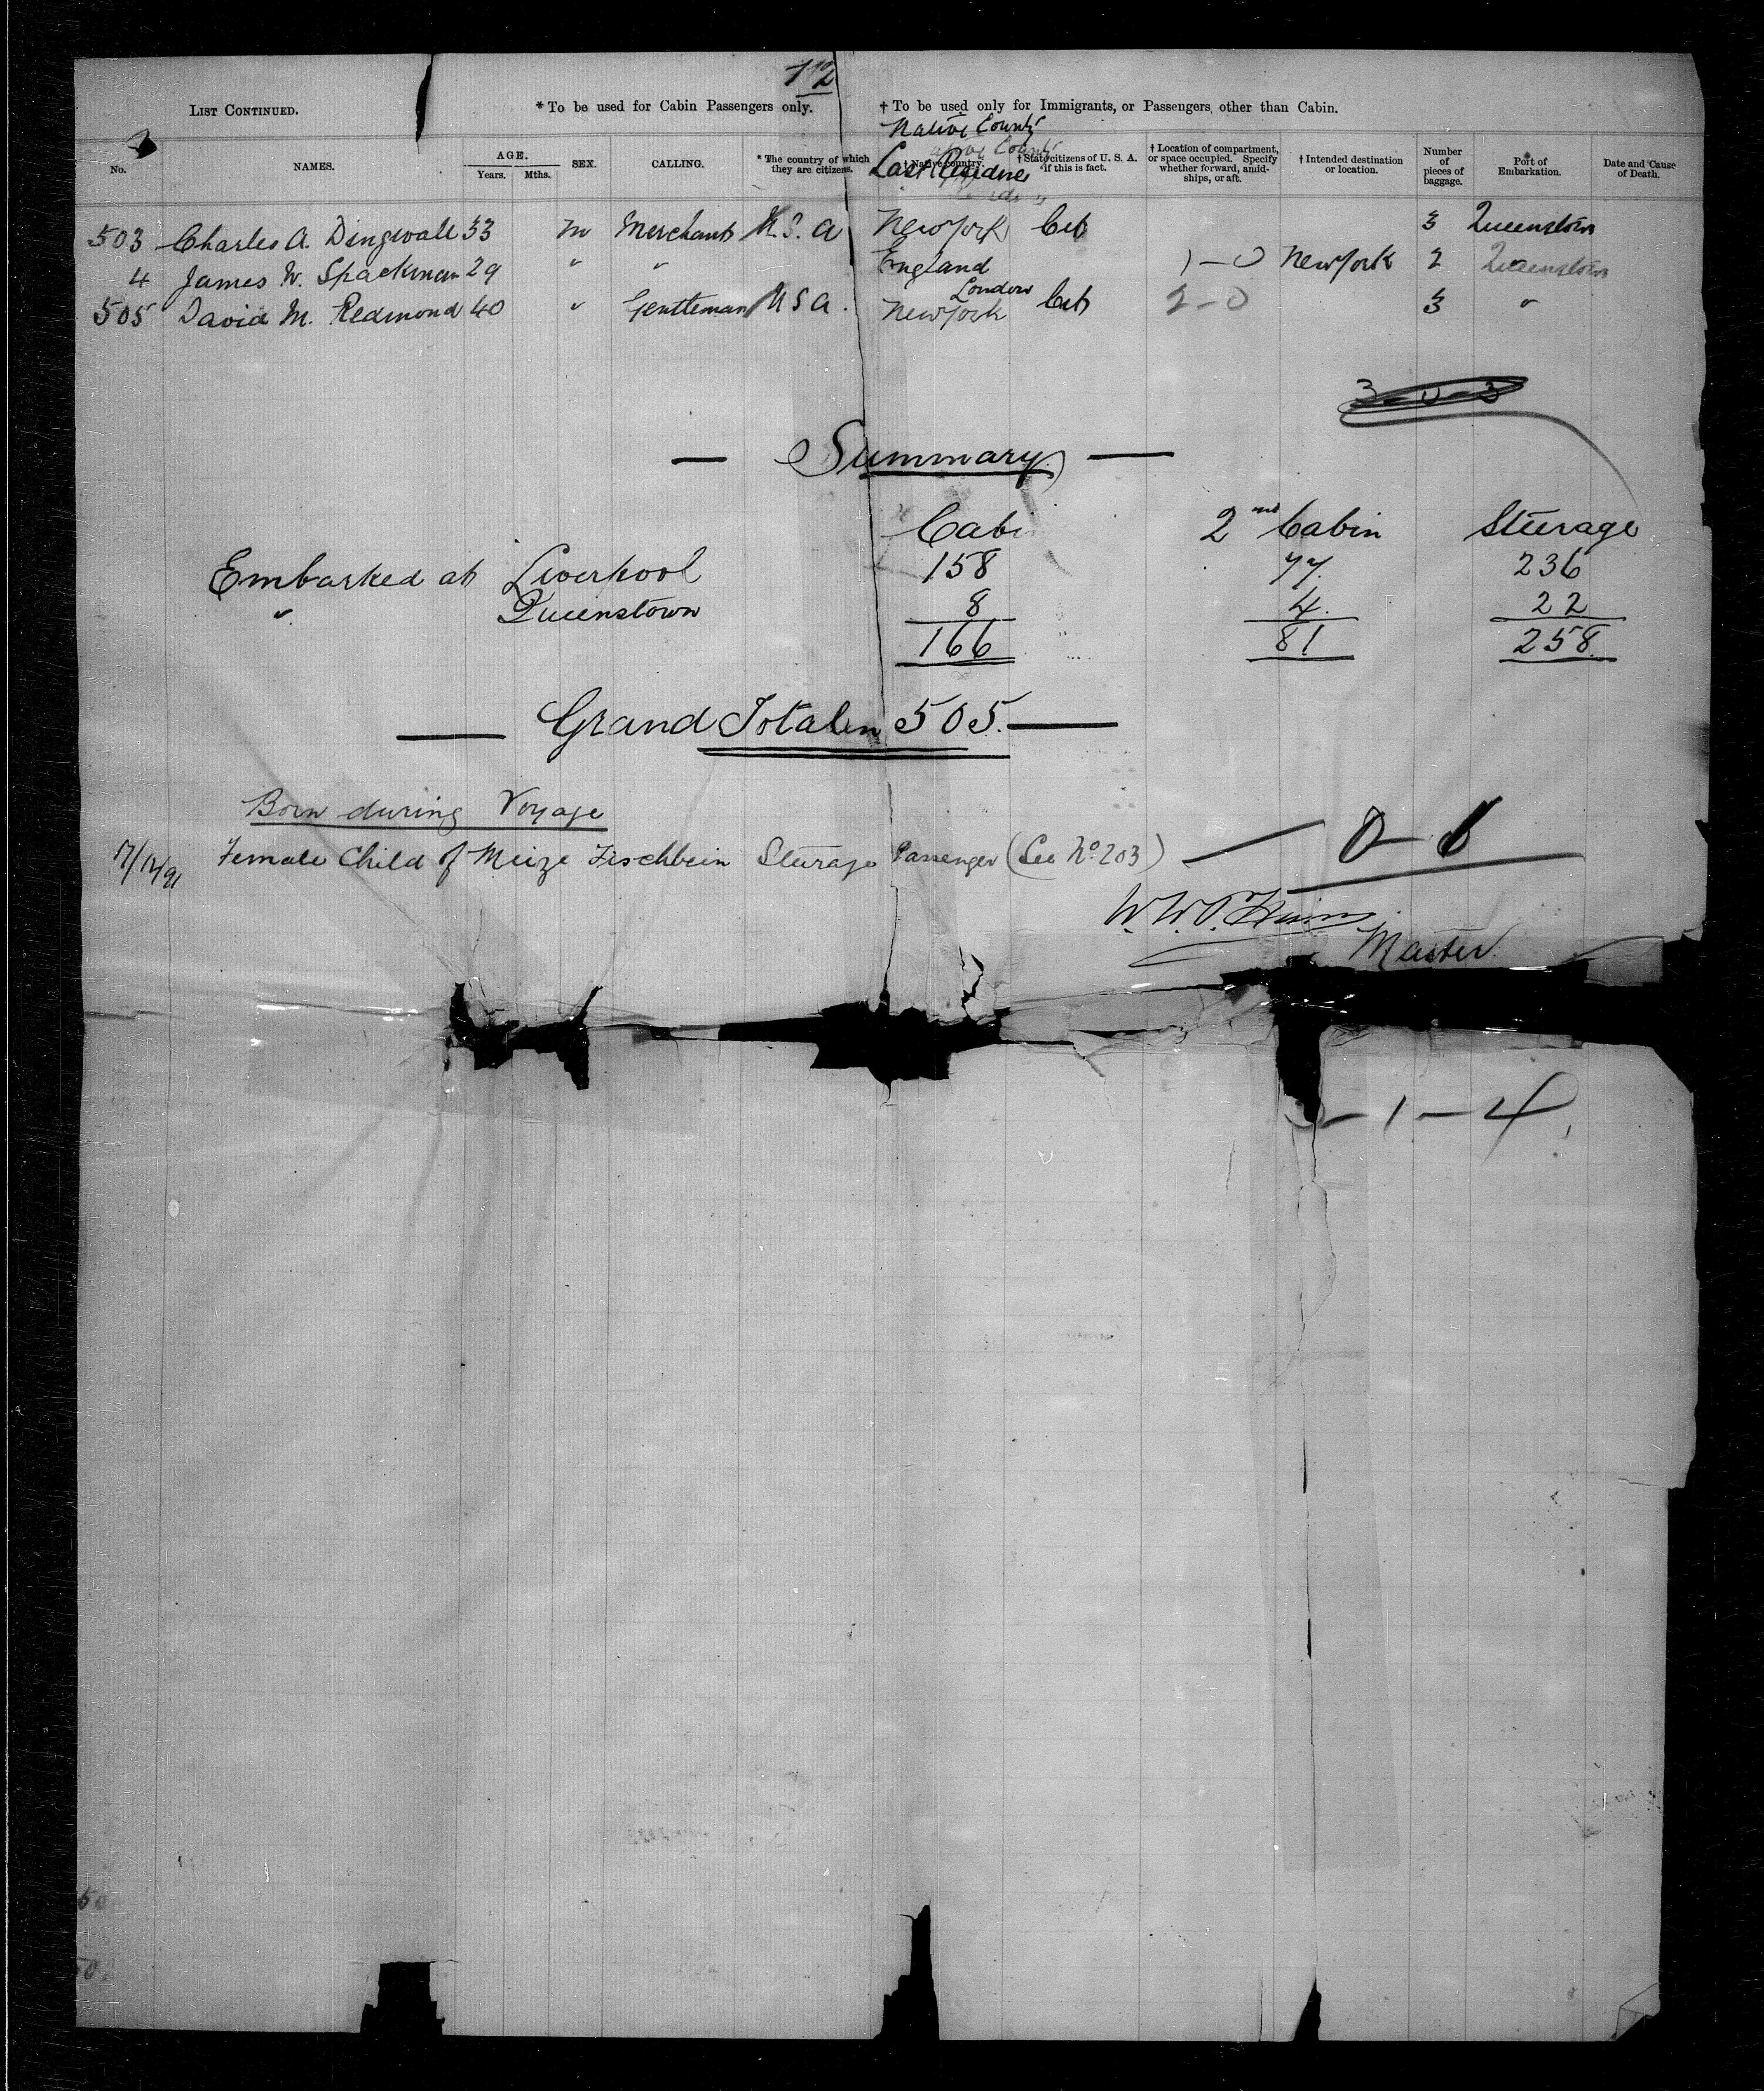 12
LIST CONTINUED. * To be used for Cabin Passengers only. † To be used only for Immigrants, or Passengers other than Cabin.
Native County
Last Residence
No. NAMES. AGE. Years. Mths. SEX. CALLING. * The country of which they are citizens. † Native country. † State citizens of U. S. A. if this is fact. † Location of compartment, or space occupied. Specify whether forward, amidships, or aft. † Intended destination or location. Number of pieces of baggage. Port of Embarkation. Date and Cause of Death.
503 Charles A. Dingwall 33 m Merchant U.S.A New York Cit 3 Queenstown
4 James W. Spackman 29 " " England London 1-0 New York 2 Queenstown
505 David M. Redmond 40 " Gentleman U S A. New York Cit 2-0 3 "
3-0-3
— Summary —
Cabi 2nd Cabin Steerage
Embarked at Liverpool 158 77 236
" Queenstown 8 4 22
166 81 258
— Grand Total 505. —
Born during Voyage
17/12/91 Female Child of Meize Fischbein Steerage Passenger (See No. 203) — 0-
W.W.
Master
-1-4